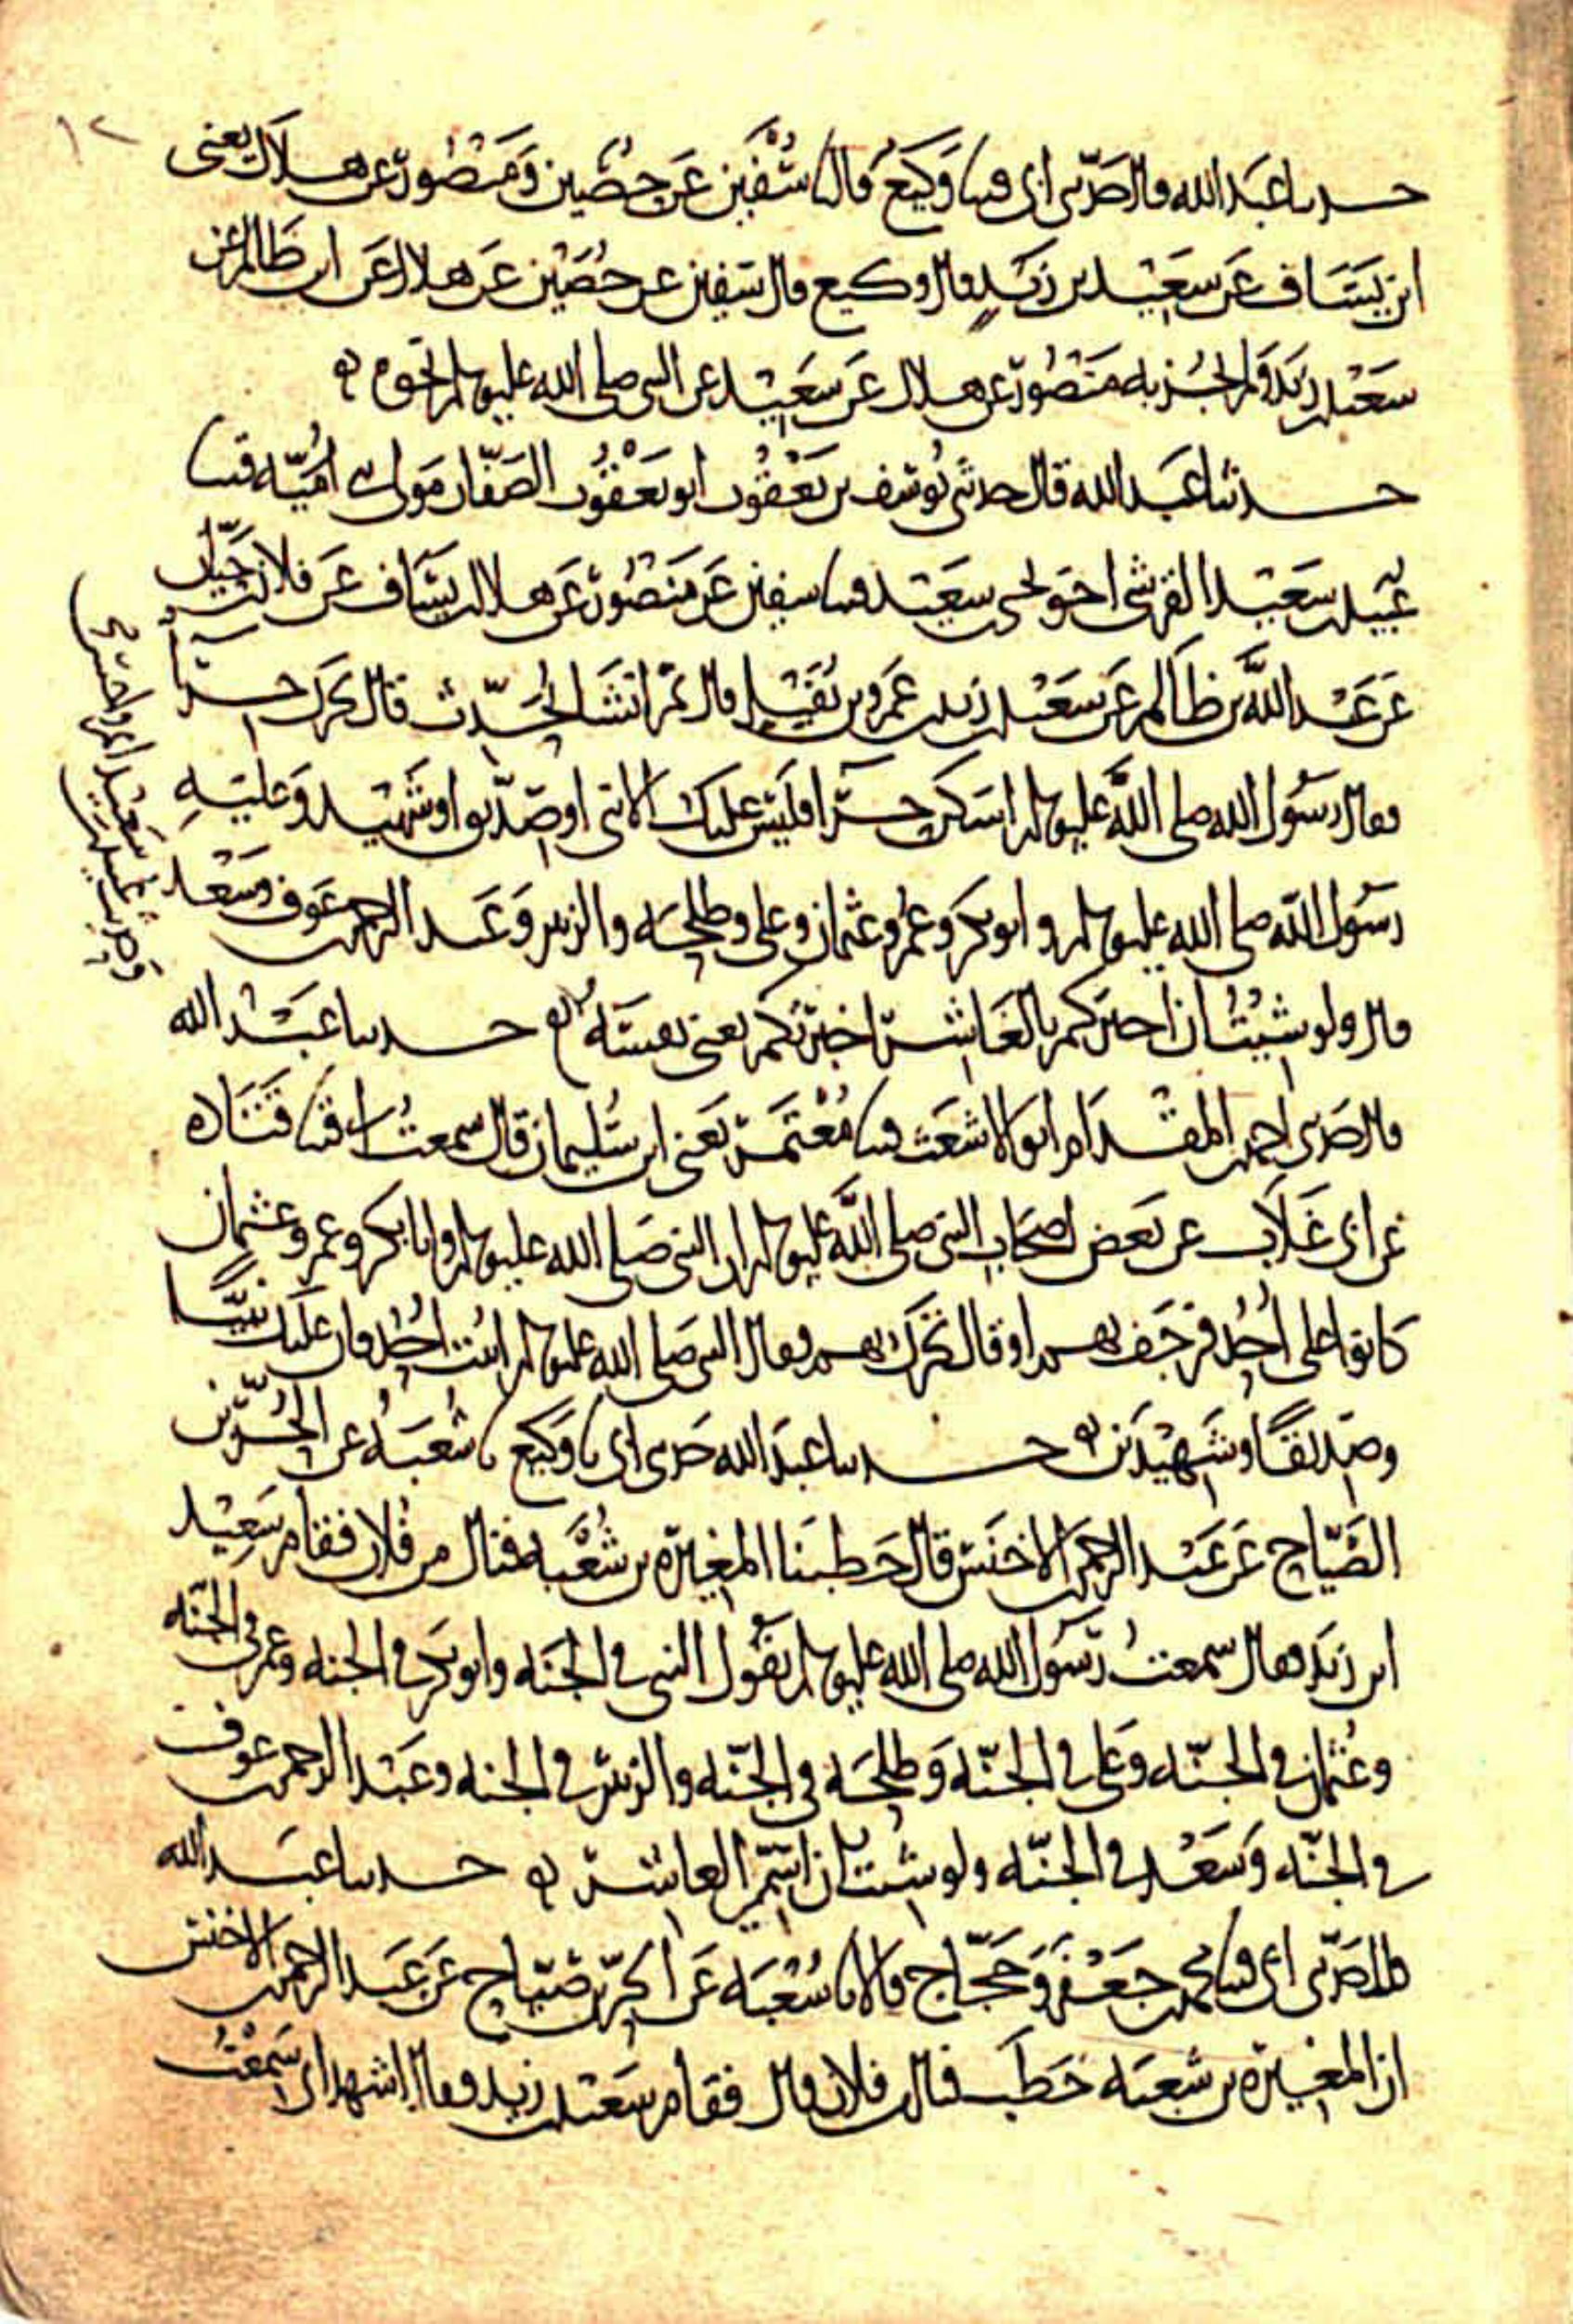 ١٢
حدثنا عبد الله قال حدثني ابي قثنا وكيع قال نا سفين عن حصين ومنصور عن هلال يعني
ابن يساف عن سعيد بن زيد قال وكيع قال سفين عن حصين عن هلال عن ابن ظالم عن
سعيد بن زيد ولم يجز به منصور عن هلال عن سعيد عن النبي صلى الله عليه وسلم نحوه
حدثنا عبد الله قال حدثني يوسف بن يعقوب ابو يعقوب الصفار مولى امية قثنا
عبيد بن سعيد القرشي اخو يحيى بن سعيد قثنا سفين عن منصور عن هلال بن يساف عن فلان بن حيان
عن عبد الله بن ظالم عن سعيد بن زيد بن عمرو بن نفيل قال ثم انشا يحدث قال تحرك حرا
فقال رسول الله صلى الله عليه وسلم اسكن حرا فليس عليك الا نبي او صديق او شهيد وعليه
رسول الله صلى الله عليه وسلم وابو بكر وعمر وعثمان وعلي وطلحة والزبير وعبد الرحمن بن عوف وسعد
قال ولو شئت ان اخبركم بالعاشر اخبرتكم يعني نفسه حدثنا عبد الله
قال حدثني احمد بن المقدام ابو الاشعث قثنا معتمر يعني ابن سليمان قال سمعت ابي قثنا قتاده
عن ابي غلاب عن بعض اصحاب النبي صلى الله عليه وسلم ان النبي صلى الله عليه وسلم وابا بكر وعمر وعثمان
كانوا على احد فرجف بهم او قال تحرك بهم فقال النبي صلى الله عليه وسلم اثبت احد فان عليك نبيا
وصديقا وشهيدين حدثنا عبد الله حدثني ابي نا وكيع نا شعبه عن الحر بن
الصياح عن عبد الرحمن بن الاخنس قال خطبنا المغيرة بن شعبه فنال من فلان فقام سعيد
ابن زيد فقال سمعت رسول الله صلى الله عليه وسلم يقول النبي في الجنه وابو بكر في الجنه وعمر في الجنه
وعثمان في الجنه وعلي في الجنه وطلحه في الجنه والزبير في الجنه وعبد الرحمن بن عوف
في الجنه وسعد في الجنه ولو شئت ان اسمي العاشر حدثنا عبد الله
قال حدثني ابي قثنا محمد بن جعفر وحجاج قالا نا شعبه عن الحر بن صياح عن عبد الرحمن بن الاخنس
ان المغيرة بن شعبه خطب فنال من فلان قال فقام سعيد بن زيد وقال اشهد اني سمعت